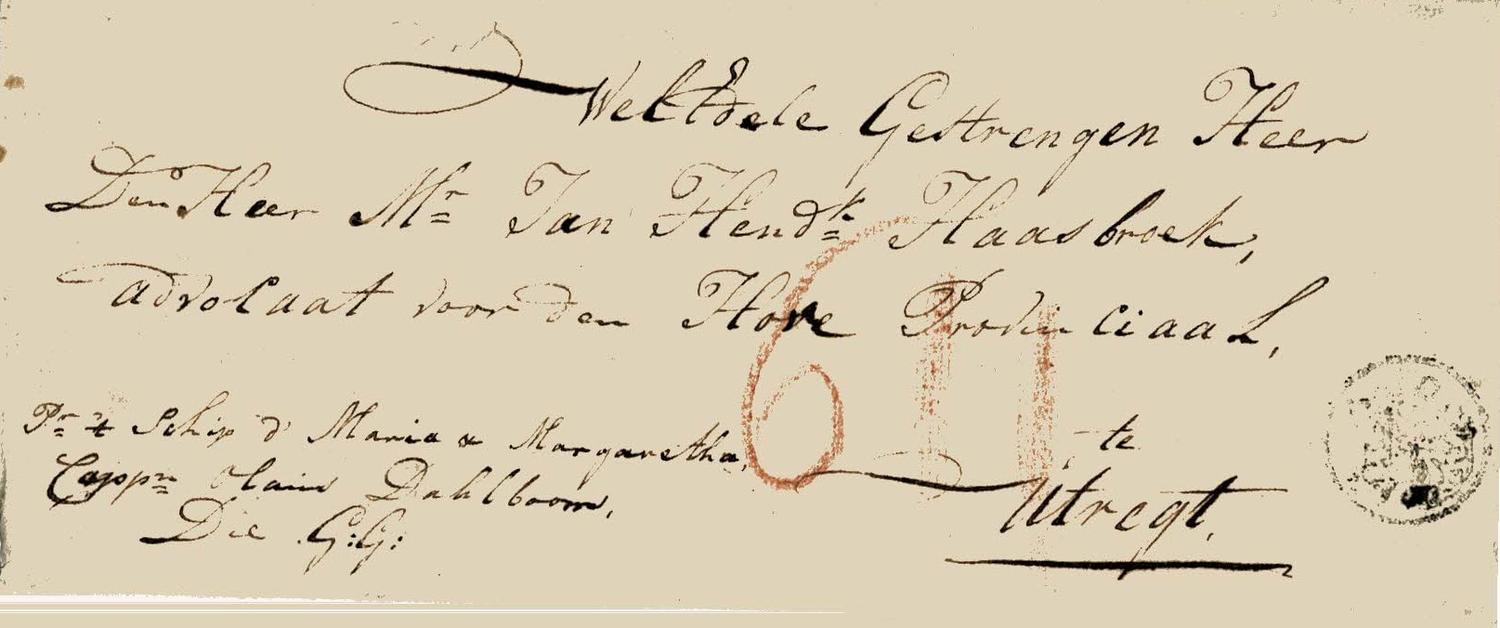 WelEdele Gestrengen Heer
Den Heer Mr Jan Hendk Haasbroek,
advocaat voor den Hove Provinciaal,
te
Utregt.
Pr 't Schip d' Maria & Margaretha,
Cappn Olaus Dahlboom,
Die G:G:
6